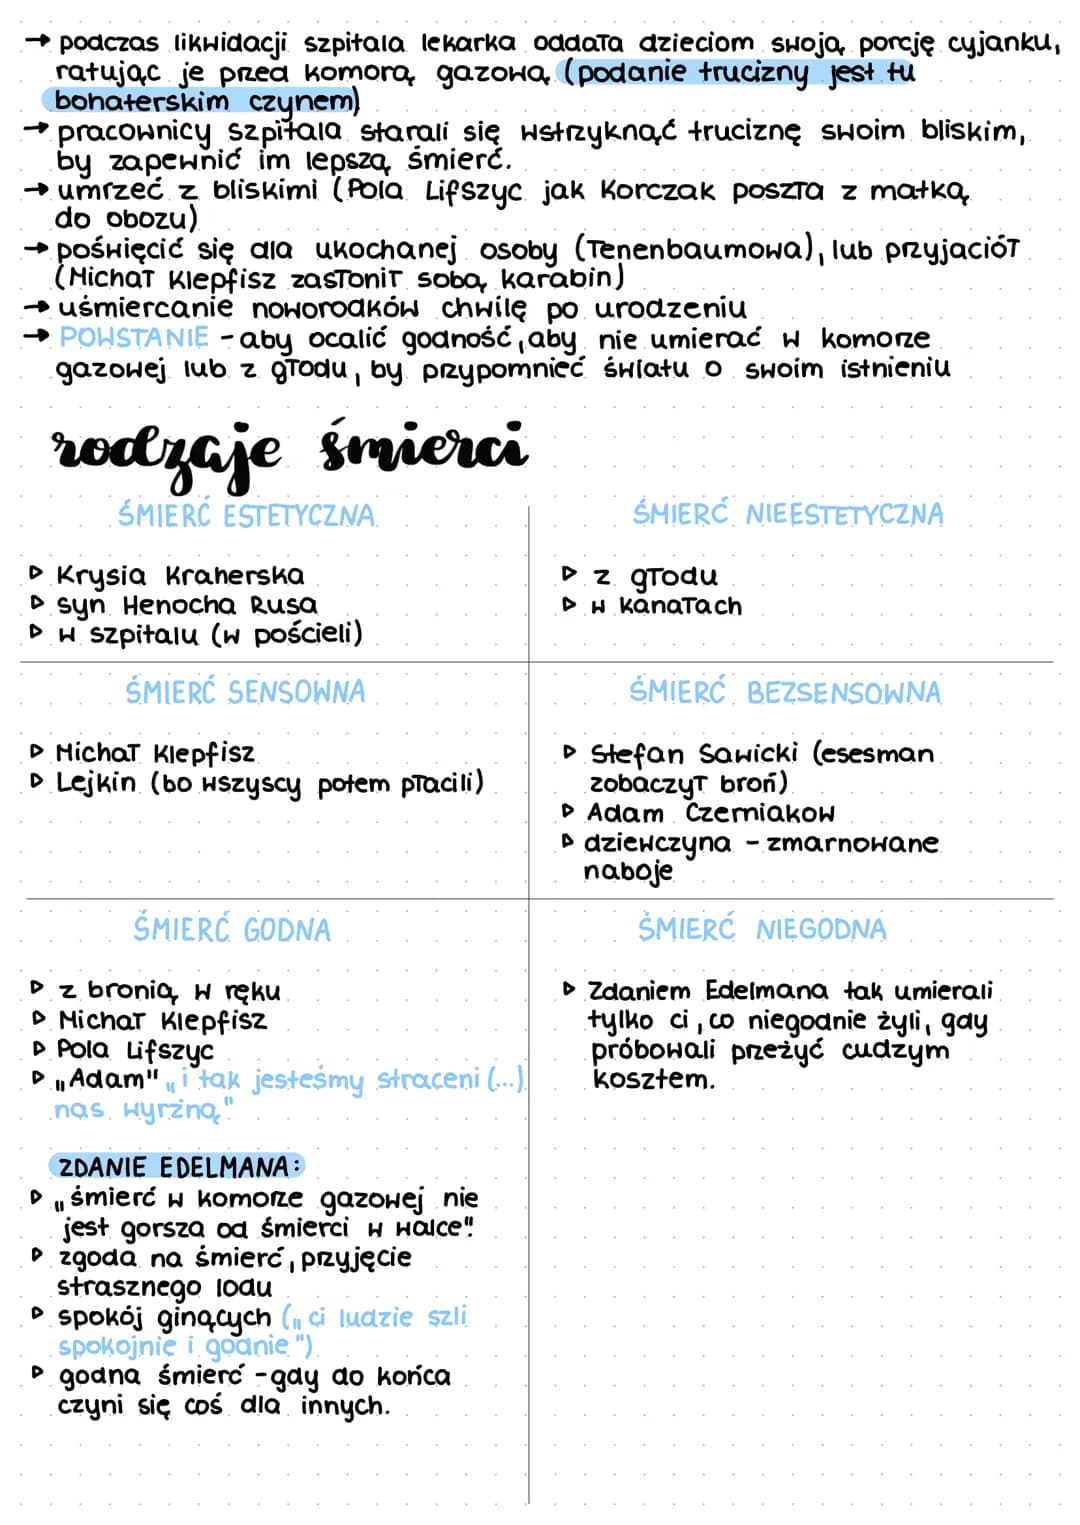 → podczas likwidacji szpitala lekarka oddała dzieciom swoją porcję cyjanku,
ratując je przed komorą gazową (podanie trucizny jest tu
bohaterskim czynem)
→ pracownicy szpitala starali się wstrzyknąć truciznę swoim bliskim,
by zapewnić im lepszą śmierć.
→ umrzeć z bliskimi (Pola Lifszyc jak Korczak poszła z matką
do obozu)
→ poświęcić się dla ukochanej osoby (Tenenbaumowa), lub przyjaciół
(Michał Klepfisz zasłonił sobą karabin)
→ uśmiercanie noworodków chwilę po urodzeniu
→ POWSTANIE - aby ocalić godność, aby nie umierać w komorze
gazowej lub z głodu, by przypomnieć światu o swoim istnieniu
rodzaje śmierci
ŚMIERĆ ESTETYCZNA
▷ Krysia Kraherska
▷ syn Henocha Rusa
▷ w szpitalu (w pościeli)
ŚMIERĆ NIEESTETYCZNA
▷ z głodu
▷ w kanałach
ŚMIERĆ SENSOWNA
▷ Michał Klepfisz
▷ Lejkin (bo wszyscy potem płacili)
ŚMIERĆ BEZSENSOWNA
▷ Stefan Sawicki (esesman
zobaczył broń)
▷ Adam Czerniakow
▷ dziewczyna - zmarnowane
naboje
ŚMIERĆ GODNA
▷ z bronią w ręku
▷ Michał Klepfisz
▷ Pola Lifszyc
▷ „Adam" „i tak jesteśmy straceni (...)
nas wyrżną"
ZDANIE EDELMANA:
▷ „śmierć w komorze gazowej nie
jest gorsza od śmierci w walce"
▷ zgoda na śmierć, przyjęcie
strasznego lodu
▷ spokój ginących („ci ludzie szli
spokojnie i godnie")
▷ godna śmierć - gdy do końca
czyni się coś dla innych.
ŚMIERĆ NIEGODNA
▷ Zdaniem Edelmana tak umierali
tylko ci, co niegodnie żyli, gdy
próbowali przeżyć cudzym
kosztem.